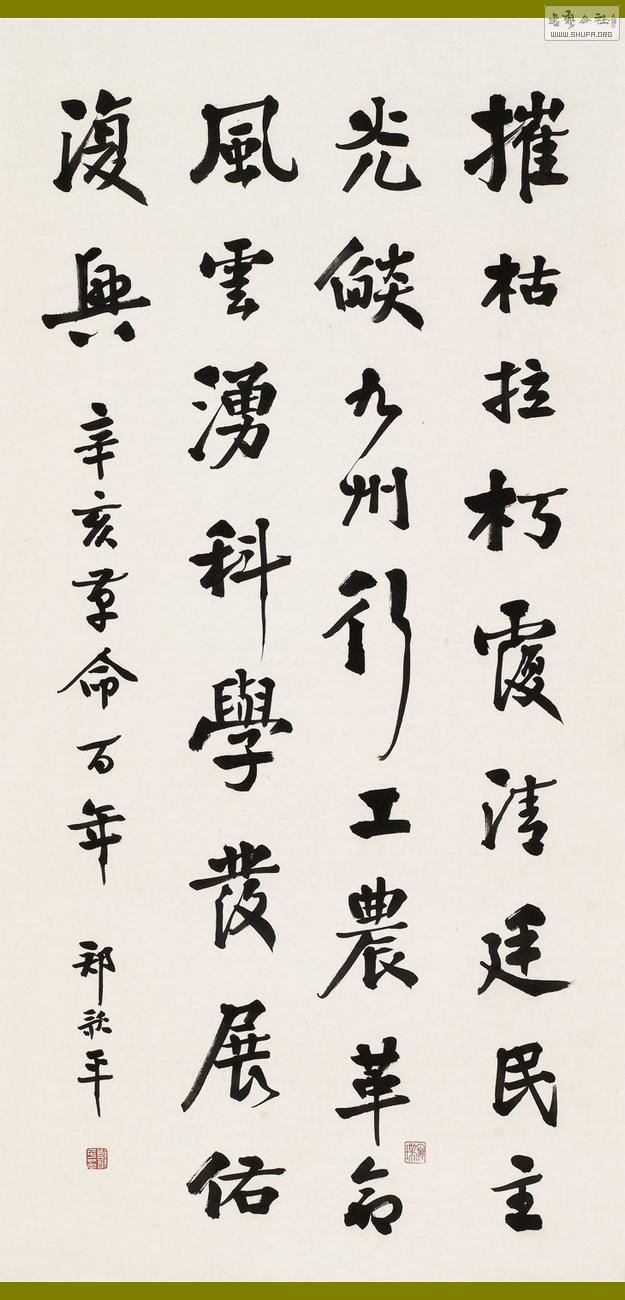 摧枯拉朽覆清廷民主
光燄九州行工農革命
風雲湧科學發展佑
復興
辛亥革命百年
郑歌平
WWW.SHUFA.ORG